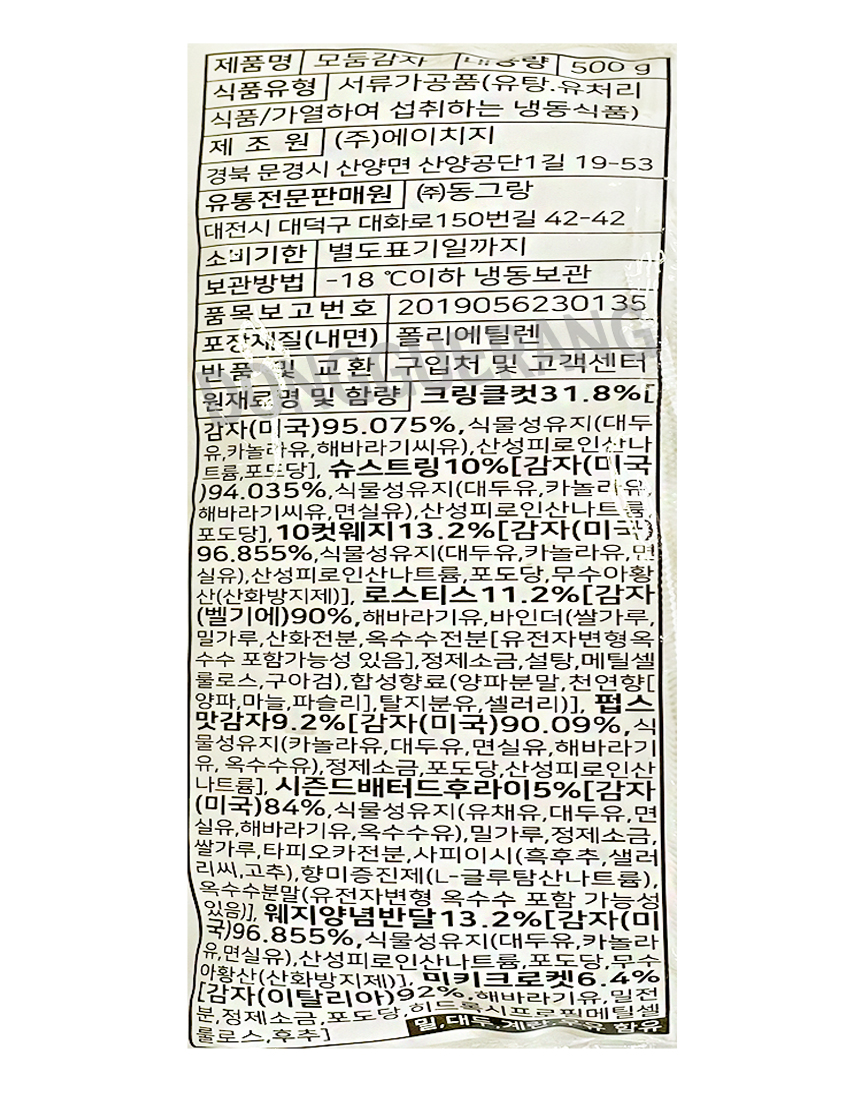 제품명 모둠감자 내용량 500 g
식품유형 서류가공품(유탕.유처리
식품/가열하여 섭취하는 냉동식품)
제 조 원 (주)에이치지
경북 문경시 산양면 산양공단1길 19-53
유통전문판매원 ㈜동그랑
대전시 대덕구 대화로150번길 42-42
소비기한 별도표기일까지
보관방법 -18 ℃이하 냉동보관
품목보고번호 2019056230135
포장재질(내면) 폴리에틸렌
반품 및 교환 구입처 및 고객센터
DONGGUERANG
원재료명 및 함량 크링클컷31.8%[
감자(미국)95.075%,식물성유지(대두
유,카놀라유,해바라기씨유),산성피로인산나
트륨,포도당], 슈스트링10%[감자(미국
)94.035%,식물성유지(대두유,카놀라유,
해바라기씨유,면실유),산성피로인산나트륨,
포도당],10컷웨지13.2%[감자(미국)
96.855%,식물성유지(대두유,카놀라유,면
실유),산성피로인산나트륨,포도당,무수아황
산(산화방지제)], 로스티스11.2%[감자
(벨기에)90%,해바라기유,바인더(쌀가루,
밀가루,산화전분,옥수수전분[유전자변형옥
수수 포함가능성 있음],정제소금,설탕,메틸셀
룰로스,구아검),합성향료(양파분말,천연향[
양파,마늘,파슬리],탈지분유,셀러리)], 펍스
맛감자9.2%[감자(미국)90.09%,식
물성유지(카놀라유,대두유,면실유,해바라기
유, 옥수수유),정제소금,포도당,산성피로인산
나트륨], 시즌드배터드후라이5%[감자
(미국)84%,식물성유지(유채유,대두유,면
실유,해바라기유,옥수수유),밀가루,정제소금,
쌀가루,타피오카전분,사피이시(흑후추,샐러
리씨,고추),향미증진제(L-글루탐산나트륨),
옥수수분말(유전자변형 옥수수 포함 가능성
있음)], 웨지양념반달13.2%[감자(미
국)96.855%,식물성유지(대두유,카놀라
유,면실유),산성피로인산나트륨,포도당,무수
아황산(산화방지제)], 미키크로켓6.4%
[감자(이탈리아)92%,해바라기유,밀전
분,정제소금,포도당,히드록시프로필메틸셀
룰로스,후추]
밀,대두,계란,우유 함유